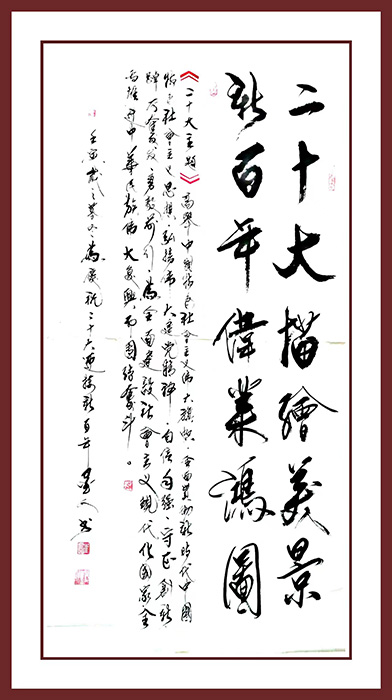 二十大描繪美景
新百年偉業鴻圖
《二十大主題》高舉中國特色社會主义偉大旗幟、全面貫彻新時代中國
特色社會主义思想，弘揚偉大建党精神，自信自強、守正創新
踔厉奮发、勇毅前行，為全面建設社會主义現代化國家全
面推进中華民族偉大復興而團結奮斗。
壬寅歲之暮冬為慶祝二十大迎接新百年